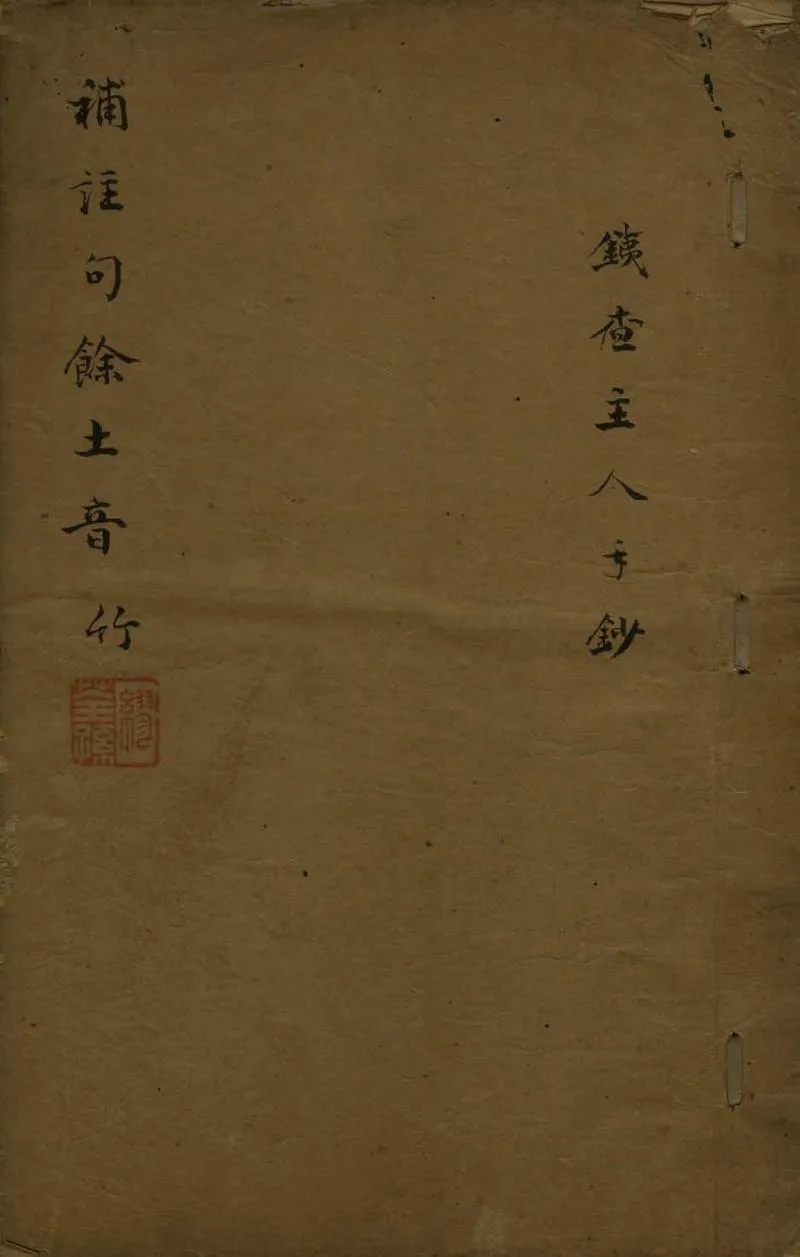 銕查主人手鈔
補註句餘土音竹